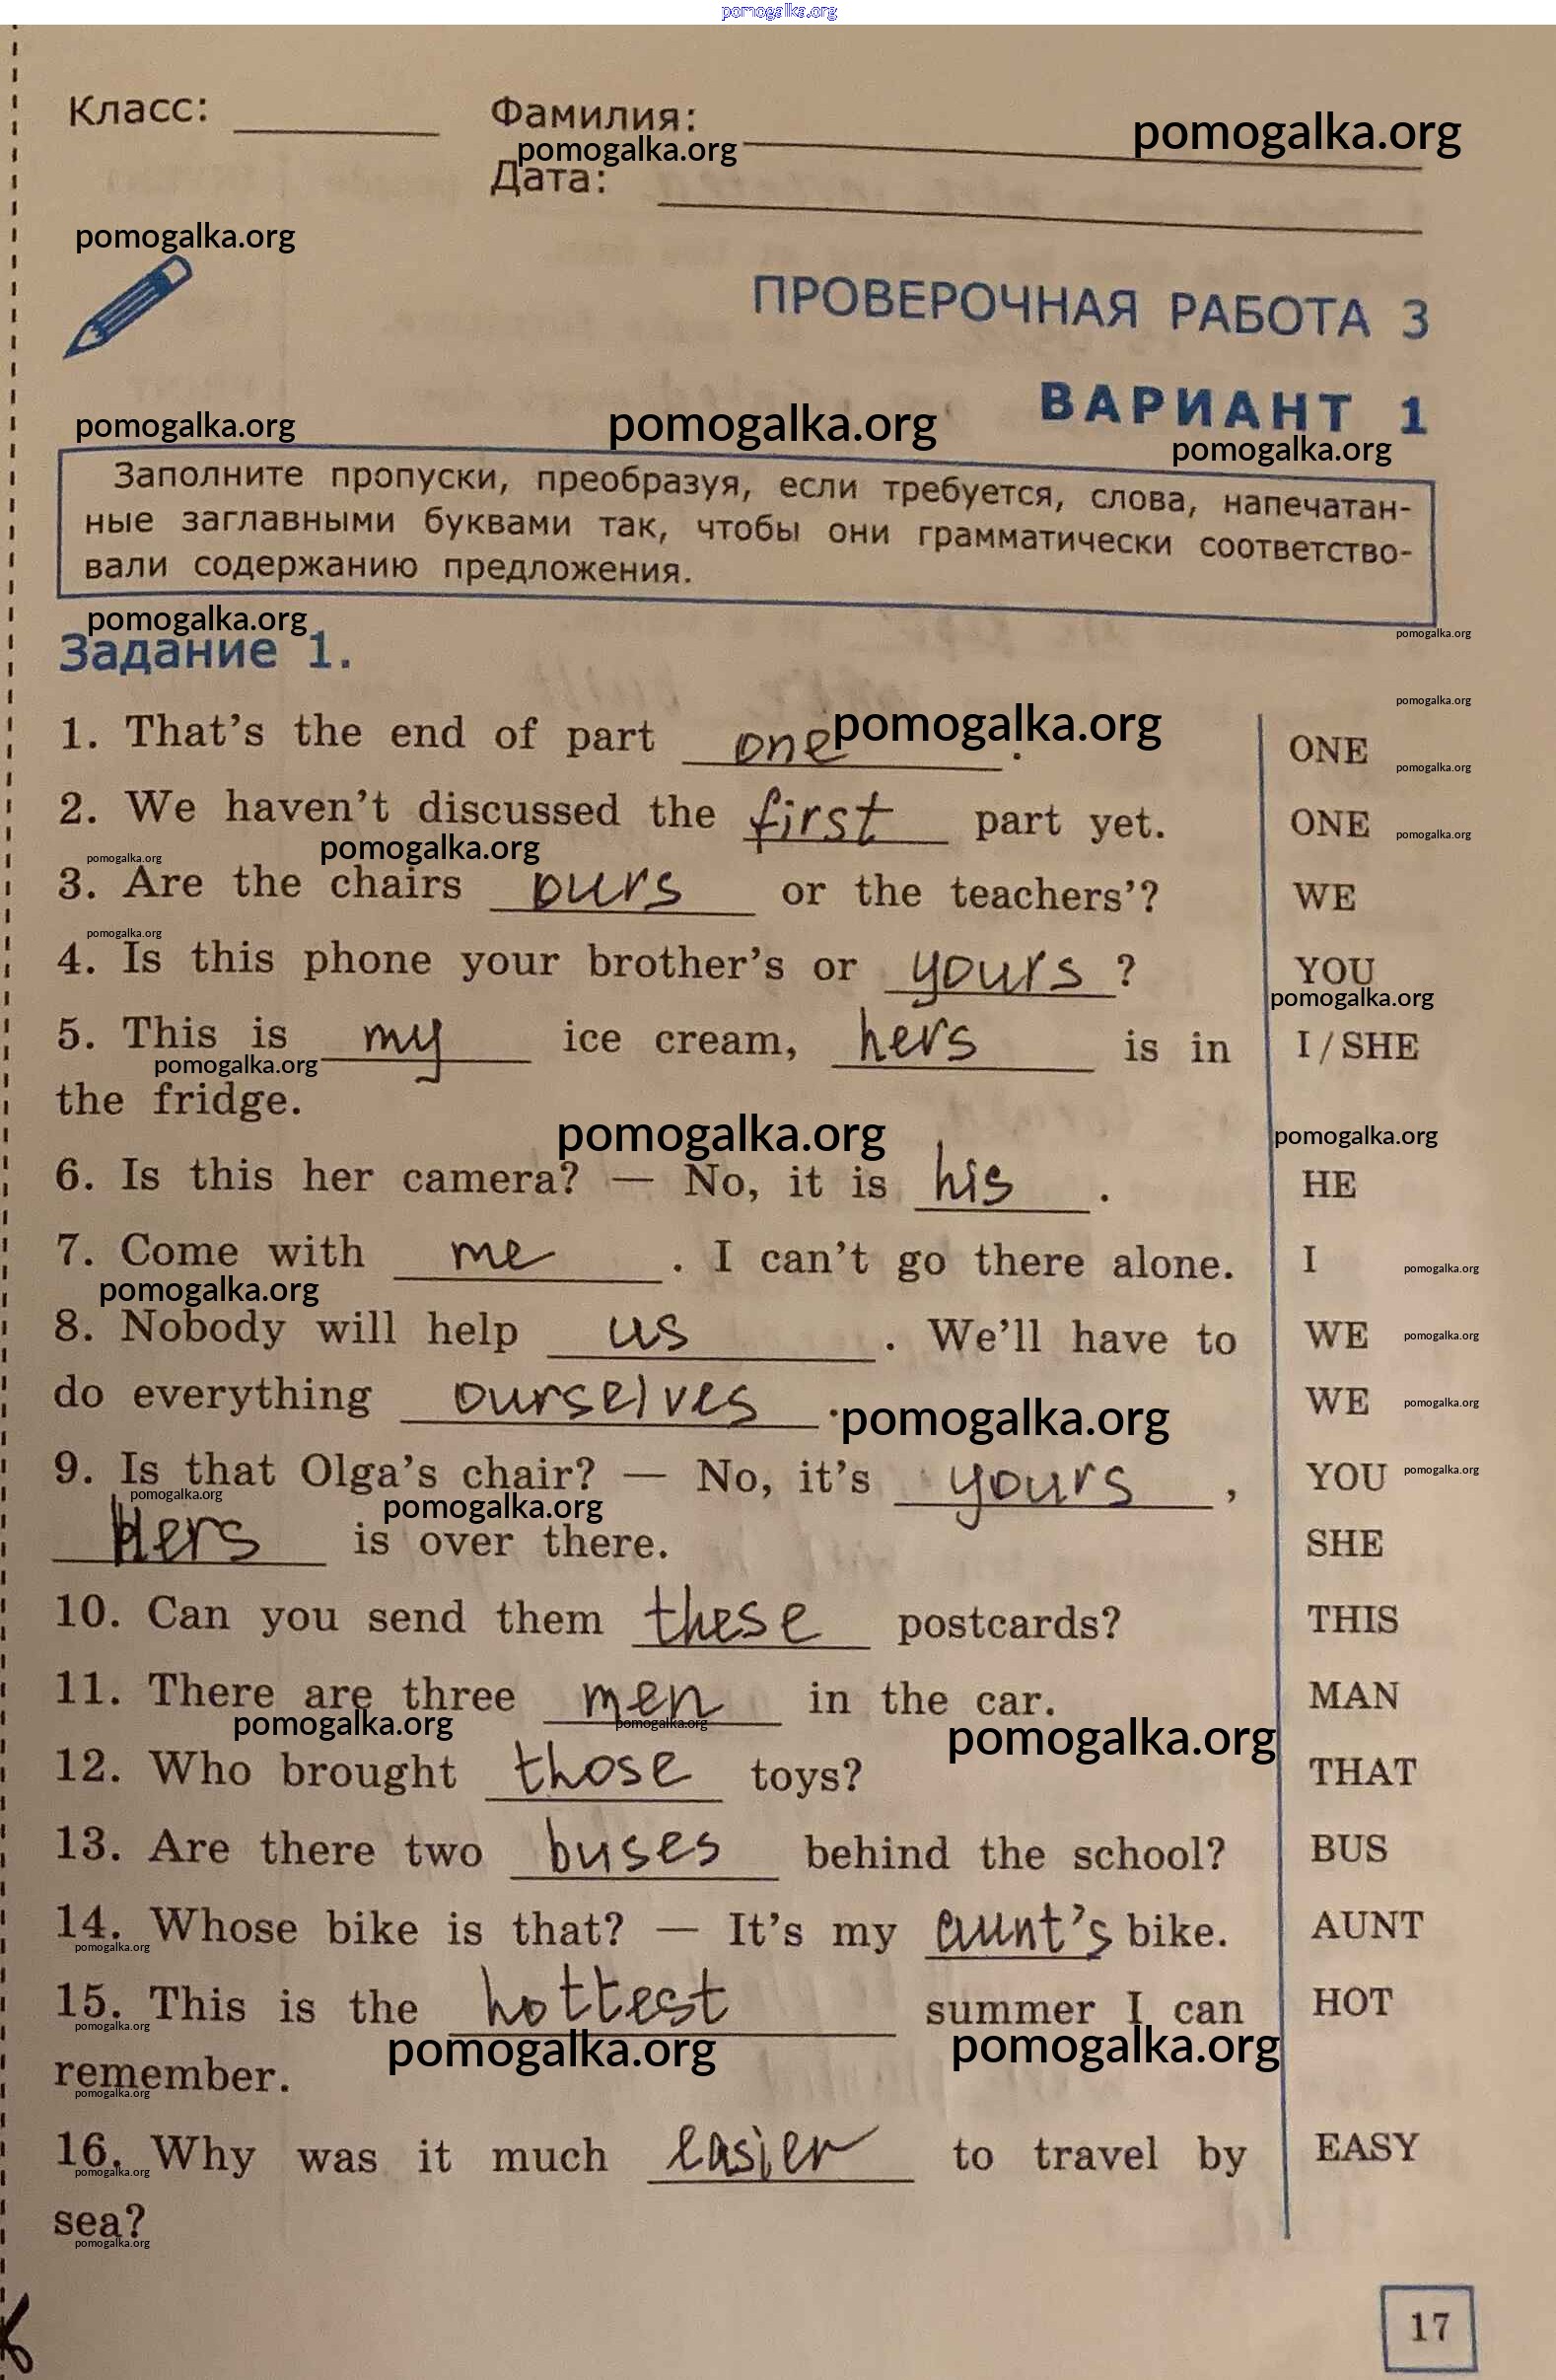 pomogalka.org
Класс: Фамилия: pomogalka.org
pomogalka.org
Дата:
pomogalka.org
ПРОВЕРОЧНАЯ РАБОТА 3
ВАРИАНТ 1
pomogalka.org pomogalka.org pomogalka.org
Заполните пропуски, преобразуя, если требуется, слова, напечатан-
ные заглавными буквами так, чтобы они грамматически соответство-
вали содержанию предложения.
pomogalka.org
pomogalka.org
Задание 1.
pomogalka.org
1. That's the end of part one. ONE
pomogalka.org pomogalka.org
2. We haven't discussed the first part yet. ONE
pomogalka.org pomogalka.org pomogalka.org
3. Are the chairs ours or the teachers'? WE
pomogalka.org
4. Is this phone your brother's or yours? YOU
pomogalka.org
5. This is my ice cream, hers is in I / SHE
pomogalka.org
the fridge.
pomogalka.org pomogalka.org
6. Is this her camera? — No, it is his. HE
7. Come with me. I can't go there alone. I
pomogalka.org pomogalka.org
8. Nobody will help us. We'll have to WE
pomogalka.org
do everything ourselves. WE
pomogalka.org pomogalka.org
9. Is that Olga's chair? — No, it's yours, YOU
pomogalka.org pomogalka.org pomogalka.org
Hers is over there. SHE
10. Can you send them these postcards? THIS
11. There are three men in the car. MAN
pomogalka.org pomogalka.org pomogalka.org
12. Who brought those toys? THAT
13. Are there two buses behind the school? BUS
14. Whose bike is that? — It's my aunt's bike. AUNT
pomogalka.org
15. This is the hottest summer I can HOT
pomogalka.org pomogalka.org pomogalka.org
remember.
pomogalka.org
16. Why was it much easier to travel by EASY
pomogalka.org
sea?
pomogalka.org
17